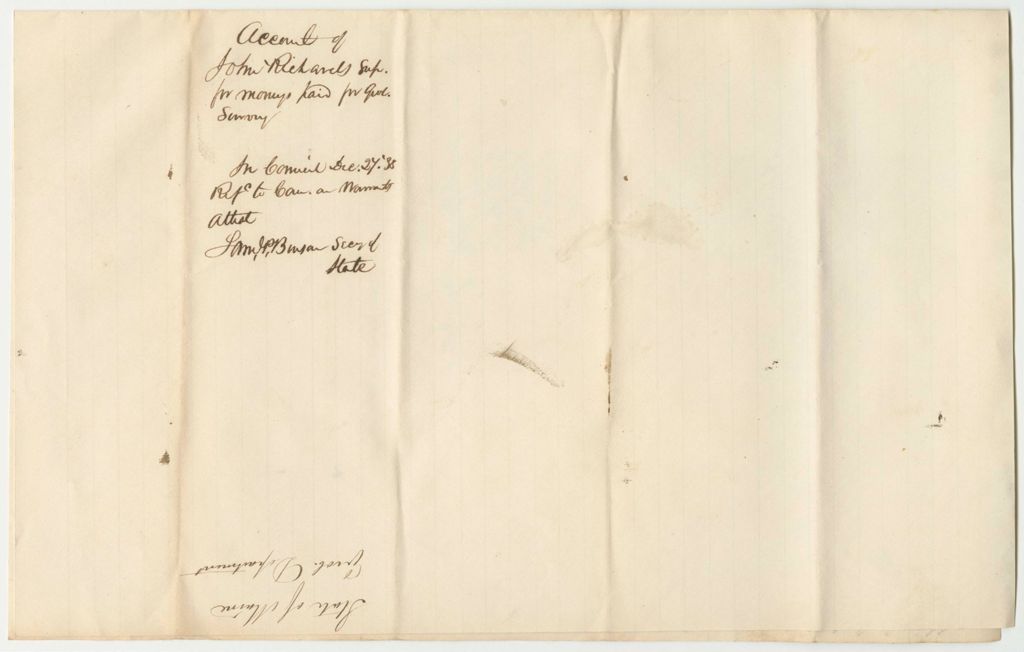 Account of
John Richards Sup.
for moneys paid for Geol.
Survey
In Council Dec. 27. '38
Refd to Com. on Warrants
Attest
Saml P. Benson Secy of
State
State of Maine
Geol. Department